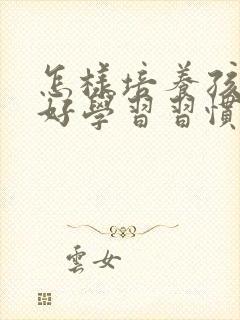 怎樣培養孩
好學習習慣
雲女